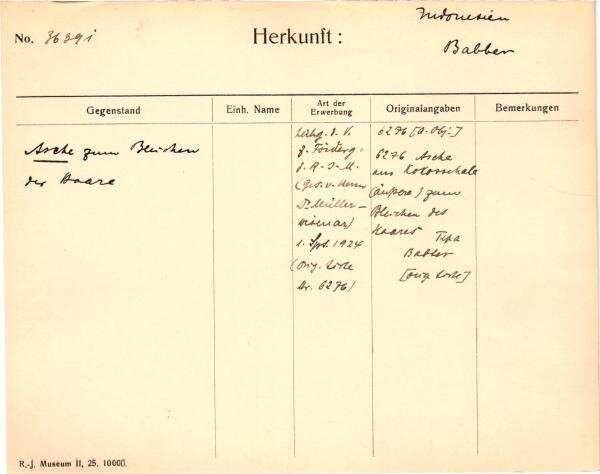 No. 36391
Herkunft:
Indonesien
Babber
Gegenstand
Einh. Name
Art der
Erwerbung
Originalangaben
Bemerkungen
Asche zum Bleichen
der Haare
d. V.
z. Förderg.
d. R-J-M.
(Ges. v. Herrn
Dr Müller-
Wismar)
1. Spt. 1924
(Orig. Liste
Nr. 6276)
6276 [a. Obj.]
6276 Asche
aus Kokosschale
(äußere) zum
Bleichen des
Haares Tepa
Babber
[Orig. Liste]
R.-J. Museum II, 25. 10000.